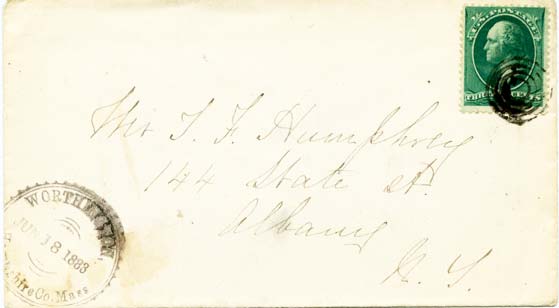 U.S. POSTAGE
THREE CENTS
Mr T. F. Humphrey
144 State st.
Albany
N. Y.
WORTHINGTON,
JUN 18 1883
shire Co. Mass